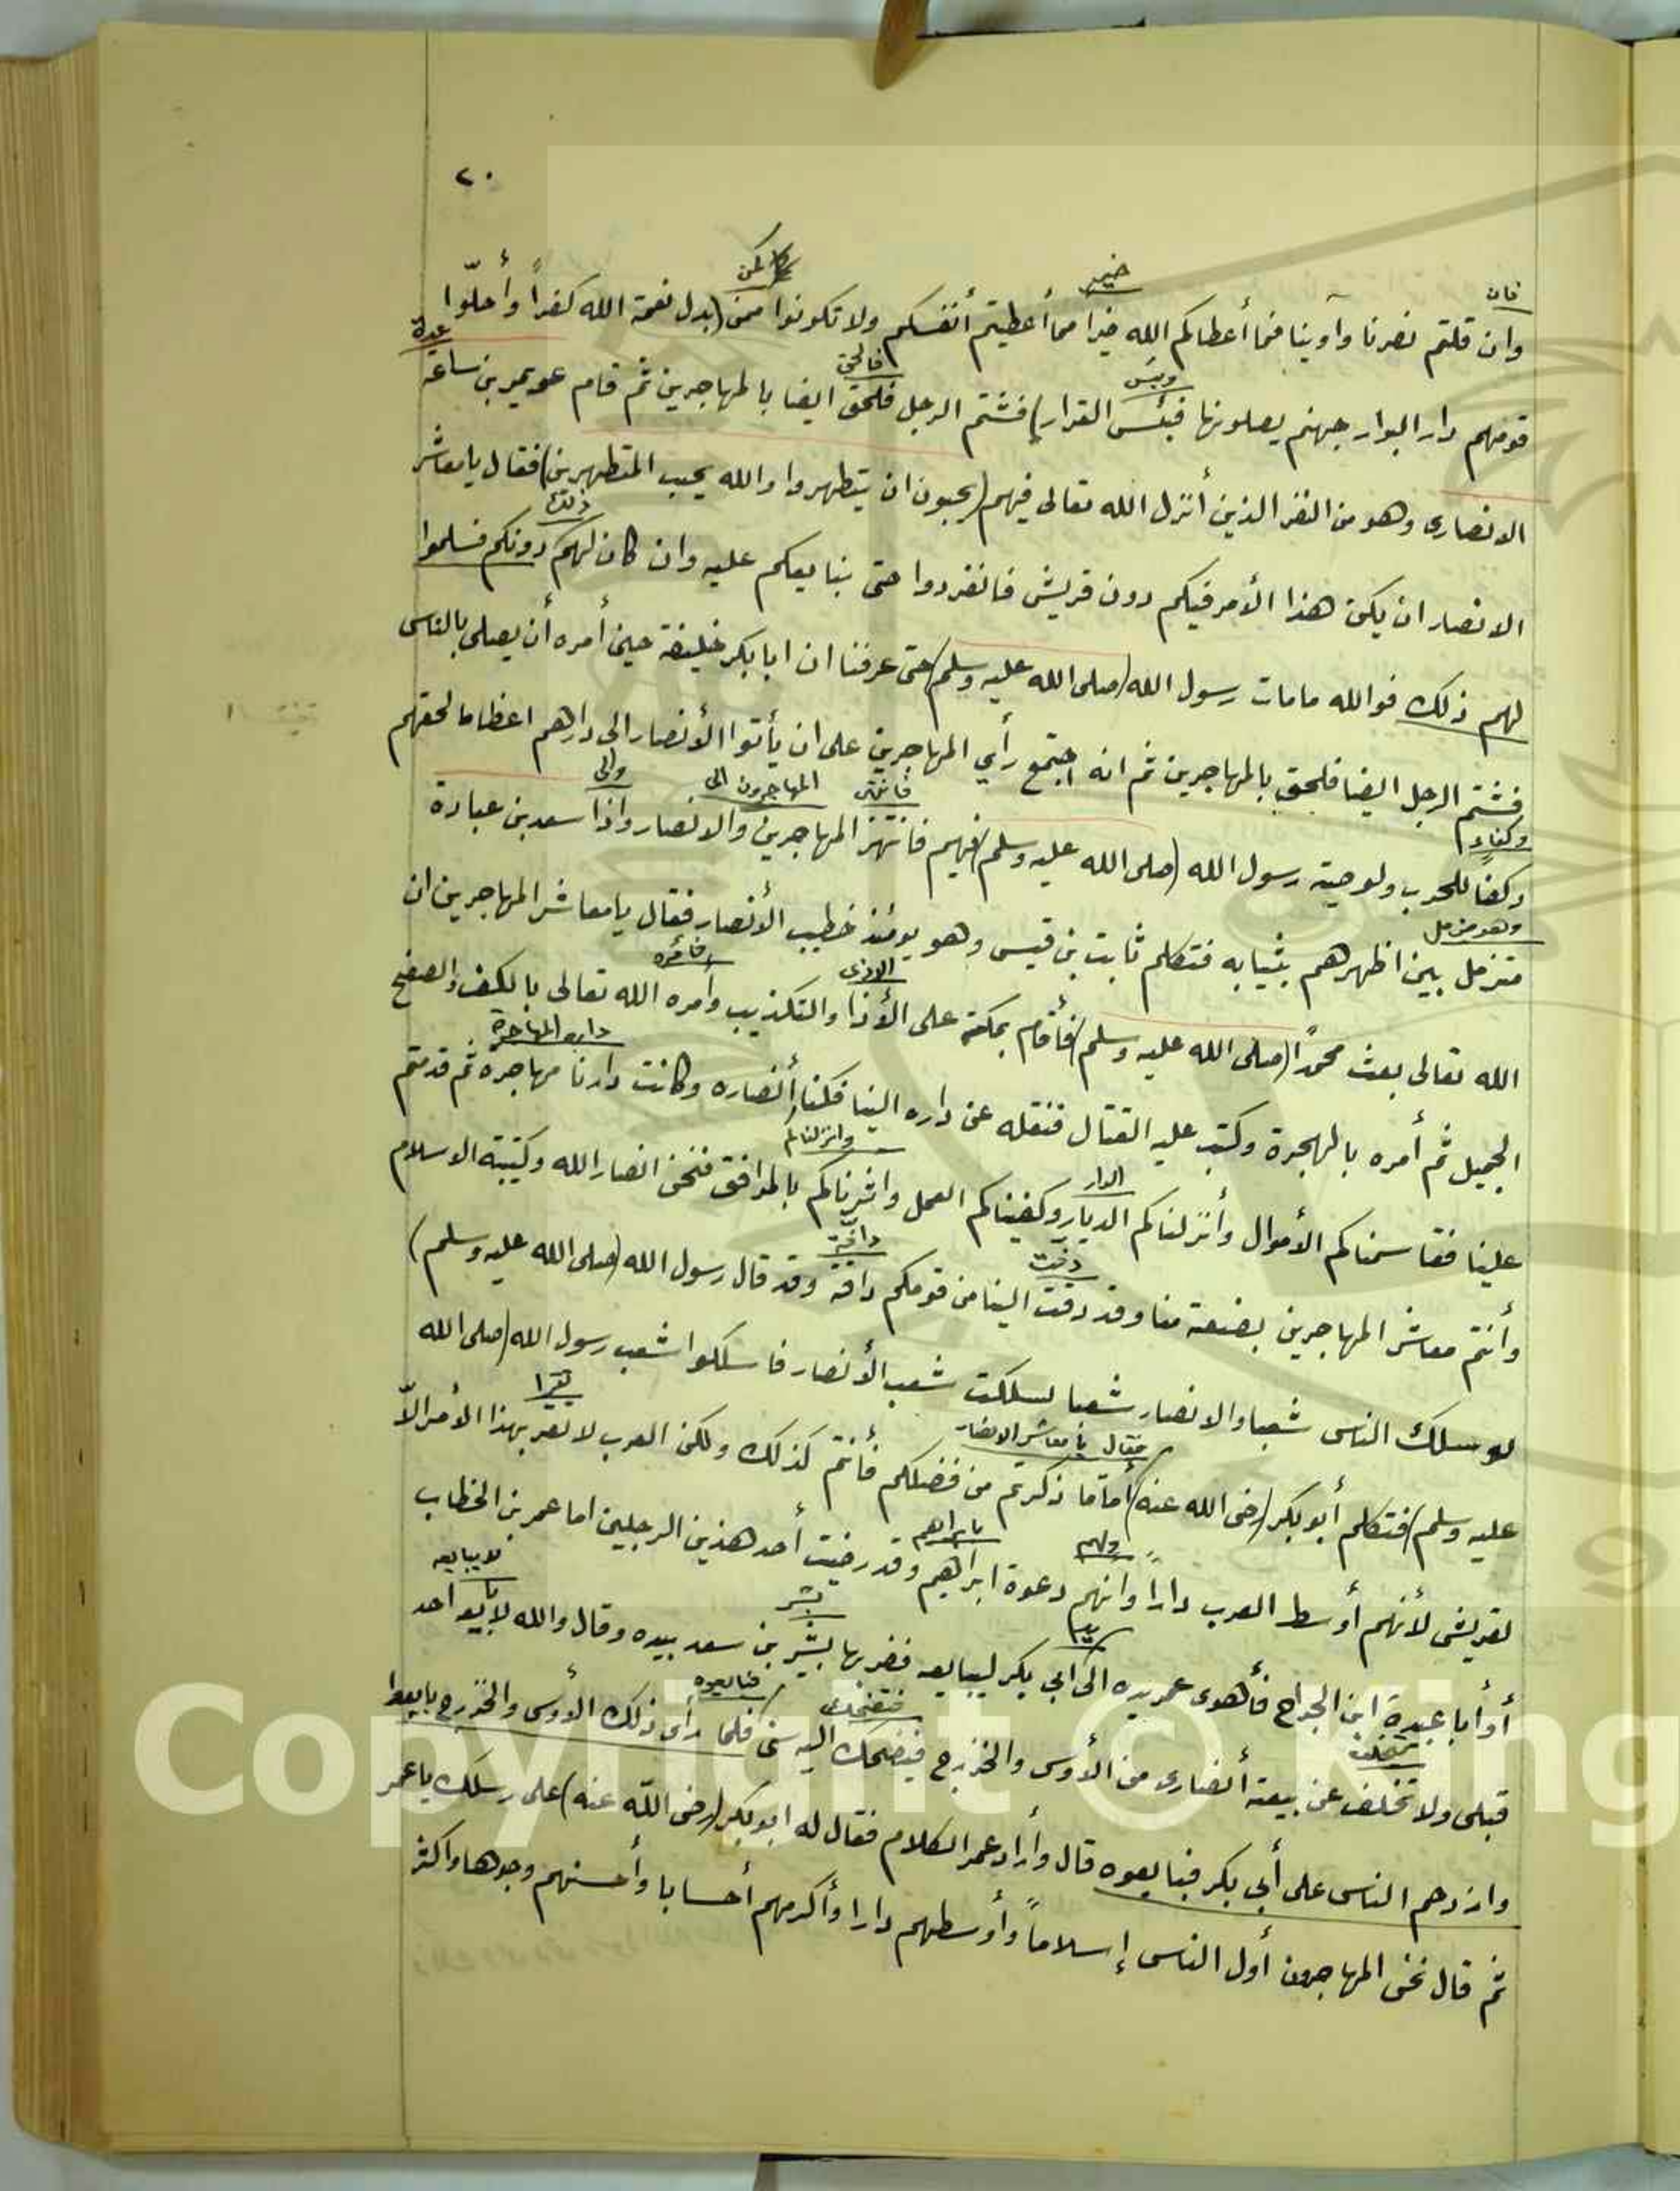 ٢٠
فان
خير
كمن
وان قلتم نصرنا وآوينا فما أعطاكم الله خيرا مما أعطيتم أنفسكم ولا تكونوا ممن (بدل نعمة الله كفراً وأحلّوا
وبئس
فالحق
عدة
قومهم دار البوار جهنم يصلونها فبئس القرار) فشتم الرجل فلحق ايضا بالمهاجرين ثم قام عويمر بن ساعة
الانصارى وهو من النفر الذين أنزل الله تعالى فيهم (يحبون ان يتطهروا والله يحب المتطهرين) فقال يا معاشر
ذلك
الانصار ان يكن هذا الأمر فيكم دون قريش فانفردوا حتى نبايعكم عليه وان كان لهم دونكم فسلموا
لهم ذلك فوالله مامات رسول الله (صلى الله عليه وسلم) حتى عرفنا ان ابا بكر خليفة حين أمره أن يصلى بالناس
فشتم الرجل ايضا فلحق بالمهاجرين ثم انه اجتمع رأي المهاجرين على ان يأتوا الأنصار الى دارهم اعظاما لحقهم
وكفاء
المهاجرون الى
والى
وكفئا للحرب ولوصية رسول الله (صلى الله عليه وسلم) فيهم فانتهز المهاجرين والانصار واذا سعد بن عبادة
وهو مزمل
متزمل بين اظهرهم بثيابه فتكلم ثابت بن قيس وهو يومئذ خطيب الأنصار فقال يا معاشر المهاجرين ان
الاذى
فأمره
الله تعالى بعث محمداً (صلى الله عليه وسلم) فأقام بمكة على الأذا والتكذيب وأمره الله تعالى بالكف والصفح
دار المهاجرة
الجميل ثم أمره بالهجرة وكتب عليه القتال فنقله عن داره الينا فكنا أنصاره وكانت دارنا مهاجره ثم قدمتم
الدار
علينا فقاسمناكم الأموال وأنزلناكم الديار وكفيناكم العمل واثرناكم بالمرافق فنحن انصار الله وكتيبة الاسلام
دفت
دافة
وأنتم معاشر المهاجرين بضعة منا وقد دفت الينا من قومكم دافة وقد قال رسول الله (صلى الله عليه وسلم)
لو سلك الناس شعبا والانصار شعبا لسلكت شعب الأنصار فاسلكوا شعب رسول الله (صلى الله
فقال يا معاشر الانصار
تقر ا
عليه وسلم) فتكلم أبو بكر (رضى الله عنه) أما ما ذكرتم من فضلكم فأنتم كذلك ولكن العرب لا تعر بهذا الأمر الاّ
ولهم
بابراهم
لقريش لأنهم أوسط العرب داراً وانهم دعوة ابراهيم وقد رضيت أحد هذين الرجلين اما عمر بن الخطاب
بشر
لا يبايعه
أو أبا عبيدة ابن الجراح فأهوى عمر يده الى ابي بكر ليبايعه فضربها بشير بن سعد بيده وقال والله لا يبايعه احد
فتضحك
فبايعوه
قبلى ولا تخلف عن بيعة أنصارى من الأوس والخزرج فيضحك اليه سنى فلما رأى ذلك الأوس والخزرج بايعوا
وازدحم الناس على أبي بكر فبايعوه قال وأراد عمر الكلام فقال له ابو بكر (رضى الله عنه) على رسلك يا عمر
ثم قال نحن المهاجرون أول الناس إسلاماً وأوسطهم دارا وأكرمهم أحسابا وأحسنهم وجوها واكثر
Copyright © King